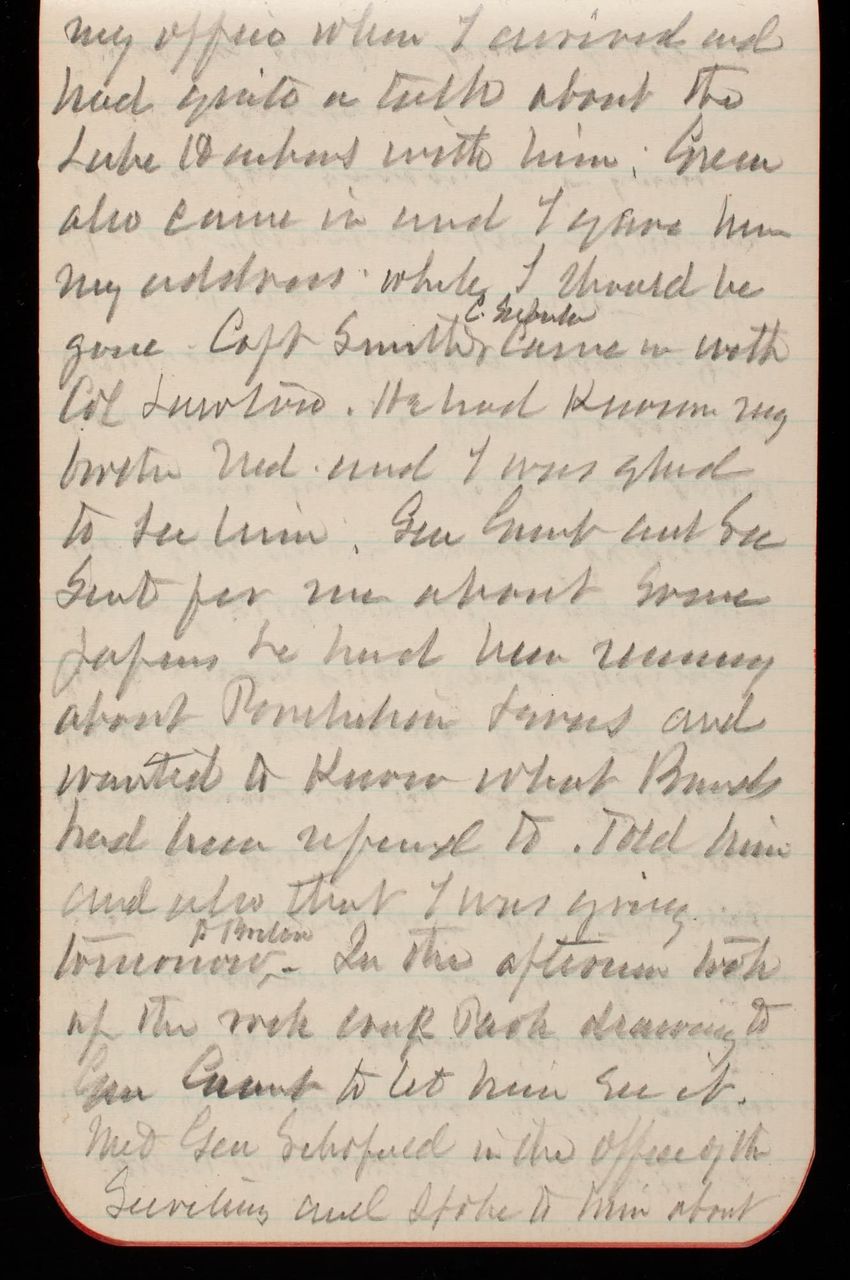 my office when I arrived and
had quite a talk about the
Lake Harbors with him. Green
also came in and I gave him
my address while I should be
gone. Capt Smith, came in with
Col Lawton. He had known my
brother Ned and I was glad
to see him. Gen Grant act Sec
Sent for me about some
papers he had been
about Revolution and
wanted to know what Bonds
had been referred to. Told him
and also that I was going
to Boston
tomorrow. In the afternoon took
up the rock creek Park drawing to
Gen Grant to let him see it.
Met Gen Schofield in the office of the
Secretary and spoke to him about